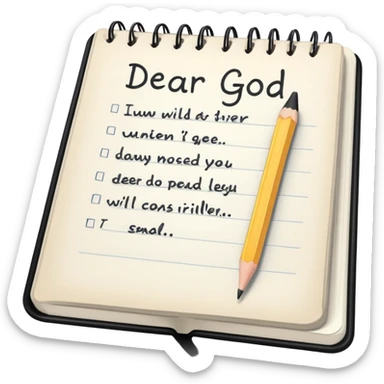 Dear God
Iuw wild a fuer
unien 'i gee..
dauy noced you
deer do pead legu
will cons iriller..
T smol..